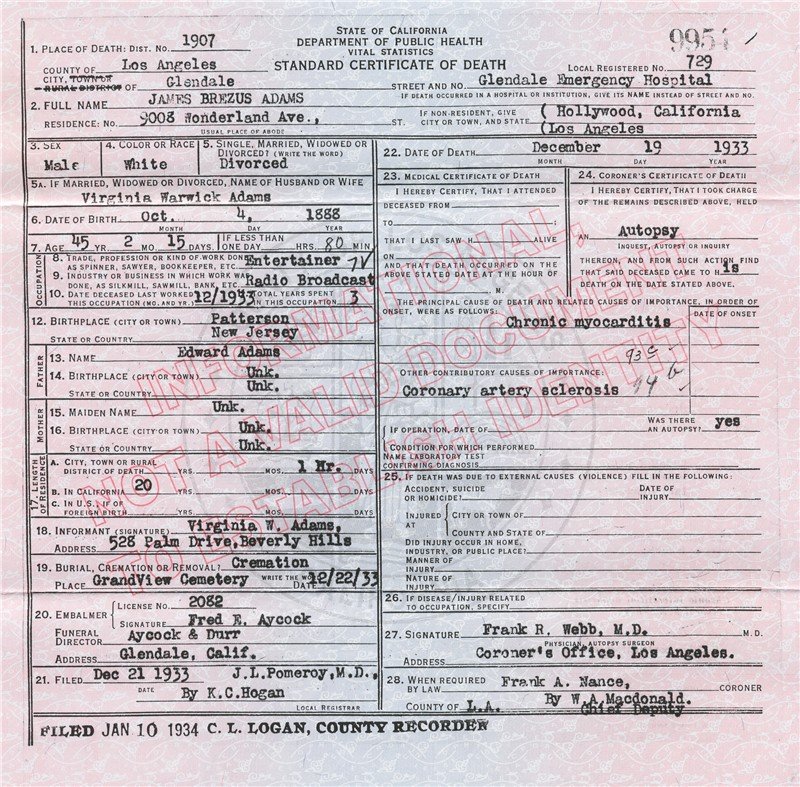 STATE OF CALIFORNIA
DEPARTMENT OF PUBLIC HEALTH
VITAL STATISTICS
STANDARD CERTIFICATE OF DEATH
1. PLACE OF DEATH: DIST. NO. 1907
LOCAL REGISTERED NO. 729
COUNTY OF Los Angeles
CITY, TOWN OR RURAL DISTRICT OF Glendale
STREET AND NO. Glendale Emergency Hospital
IF DEATH OCCURRED IN A HOSPITAL OR INSTITUTION, GIVE ITS NAME INSTEAD OF STREET AND NO.
2. FULL NAME JAMES BREZUS ADAMS
RESIDENCE: NO. 9008 Wonderland Ave., ST.
USUAL PLACE OF ABODE
IF NON-RESIDENT, GIVE CITY OR TOWN, AND STATE ( Hollywood, California
(Los Angeles
3. SEX Male
4. COLOR OR RACE White
5. SINGLE, MARRIED, WIDOWED OR DIVORCED? (WRITE THE WORD) Divorced
5A. IF MARRIED, WIDOWED OR DIVORCED, NAME OF HUSBAND OR WIFE
Virginia Warwick Adams
6. DATE OF BIRTH Oct. 4, 1888
MONTH DAY YEAR
7. AGE 45 YR. 2 MO. 15 DAYS. IF LESS THAN ONE DAY HRS. 80 MIN.
OCCUPATION
8. TRADE, PROFESSION OR KIND OF WORK DONE AS SPINNER, SAWYER, BOOKKEEPER, ETC. Entertainer
9. INDUSTRY OR BUSINESS IN WHICH WORK WAS DONE, AS SILKMILL, SAWMILL, BANK, ETC. Radio Broadcast
10. DATE DECEASED LAST WORKED THIS OCCUPATION (MO. AND YR.) 12/1933 TOTAL YEARS SPENT IN THIS OCCUPATION 3
12. BIRTHPLACE (CITY OR TOWN) Patterson
STATE OR COUNTRY New Jersey
FATHER
13. NAME Edward Adams
14. BIRTHPLACE (CITY OR TOWN) Unk.
STATE OR COUNTRY Unk.
MOTHER
15. MAIDEN NAME Unk.
16. BIRTHPLACE (CITY OR TOWN) Unk.
STATE OR COUNTRY Unk.
17. LENGTH OF RESIDENCE
A. CITY, TOWN OR RURAL DISTRICT OF DEATH YRS. MOS. 1 Hr. DAYS
B. IN CALIFORNIA 20 YRS. MOS. DAYS
C. IN U.S., IF OF FOREIGN BIRTH YRS. MOS. DAYS
18. INFORMANT (SIGNATURE) Virginia W. Adams,
ADDRESS 528 Palm Drive, Beverly Hills
19. BURIAL, CREMATION OR REMOVAL? Cremation
WRITE THE WORD
PLACE GrandView Cemetery DATE 12/22/33
20. EMBALMER LICENSE NO. 2082
SIGNATURE Fred E. Aycock
FUNERAL DIRECTOR Aycock & Durr
ADDRESS Glendale, Calif.
21. FILED Dec 21 1933 J.L.Pomeroy,M.D.,
DATE
By K.C.Hogan
LOCAL REGISTRAR
22. DATE OF DEATH December 19 1933
MONTH DAY YEAR
23. MEDICAL CERTIFICATE OF DEATH
I HEREBY CERTIFY, THAT I ATTENDED
DECEASED FROM
TO
THAT I LAST SAW H ALIVE
ON
AND THAT DEATH OCCURRED ON THE
ABOVE STATED DATE AT THE HOUR OF
M.
24. CORONER'S CERTIFICATE OF DEATH
I HEREBY CERTIFY, THAT I TOOK CHARGE
OF THE REMAINS DESCRIBED ABOVE, HELD
AN Autopsy
INQUEST, AUTOPSY OR INQUIRY
THEREON, AND FROM SUCH ACTION FIND
THAT SAID DECEASED CAME TO H is
DEATH ON THE DATE STATED ABOVE.
THE PRINCIPAL CAUSE OF DEATH AND RELATED CAUSES OF IMPORTANCE, IN ORDER OF
ONSET, WERE AS FOLLOWS: DATE OF ONSET
Chronic myocarditis
93c
OTHER CONTRIBUTORY CAUSES OF IMPORTANCE:
Coronary artery sclerosis 94 b
WAS THERE AN AUTOPSY? yes
IF OPERATION, DATE OF
CONDITION FOR WHICH PERFORMED
NAME LABORATORY TEST CONFIRMING DIAGNOSIS
25. IF DEATH WAS DUE TO EXTERNAL CAUSES (VIOLENCE) FILL IN THE FOLLOWING:
ACCIDENT, SUICIDE OR HOMICIDE? DATE OF INJURY
INJURED AT CITY OR TOWN OF
COUNTY AND STATE OF
DID INJURY OCCUR IN HOME, INDUSTRY, OR PUBLIC PLACE?
MANNER OF INJURY
NATURE OF INJURY
26. IF DISEASE/INJURY RELATED TO OCCUPATION, SPECIFY
27. SIGNATURE Frank R. Webb, M.D. M.D.
PHYSICIAN, AUTOPSY SURGEON
ADDRESS Coroner's Office, Los Angeles.
28. WHEN REQUIRED BY LAW Frank A. Nance, CORONER
COUNTY OF L.A. By W.A.Macdonald.
Chief Deputy
FILED JAN 10 1934 C. L. LOGAN, COUNTY RECORDER
INFORMATIONAL,
NOT A VALID DOCUMENT
TO ESTABLISH IDENTITY